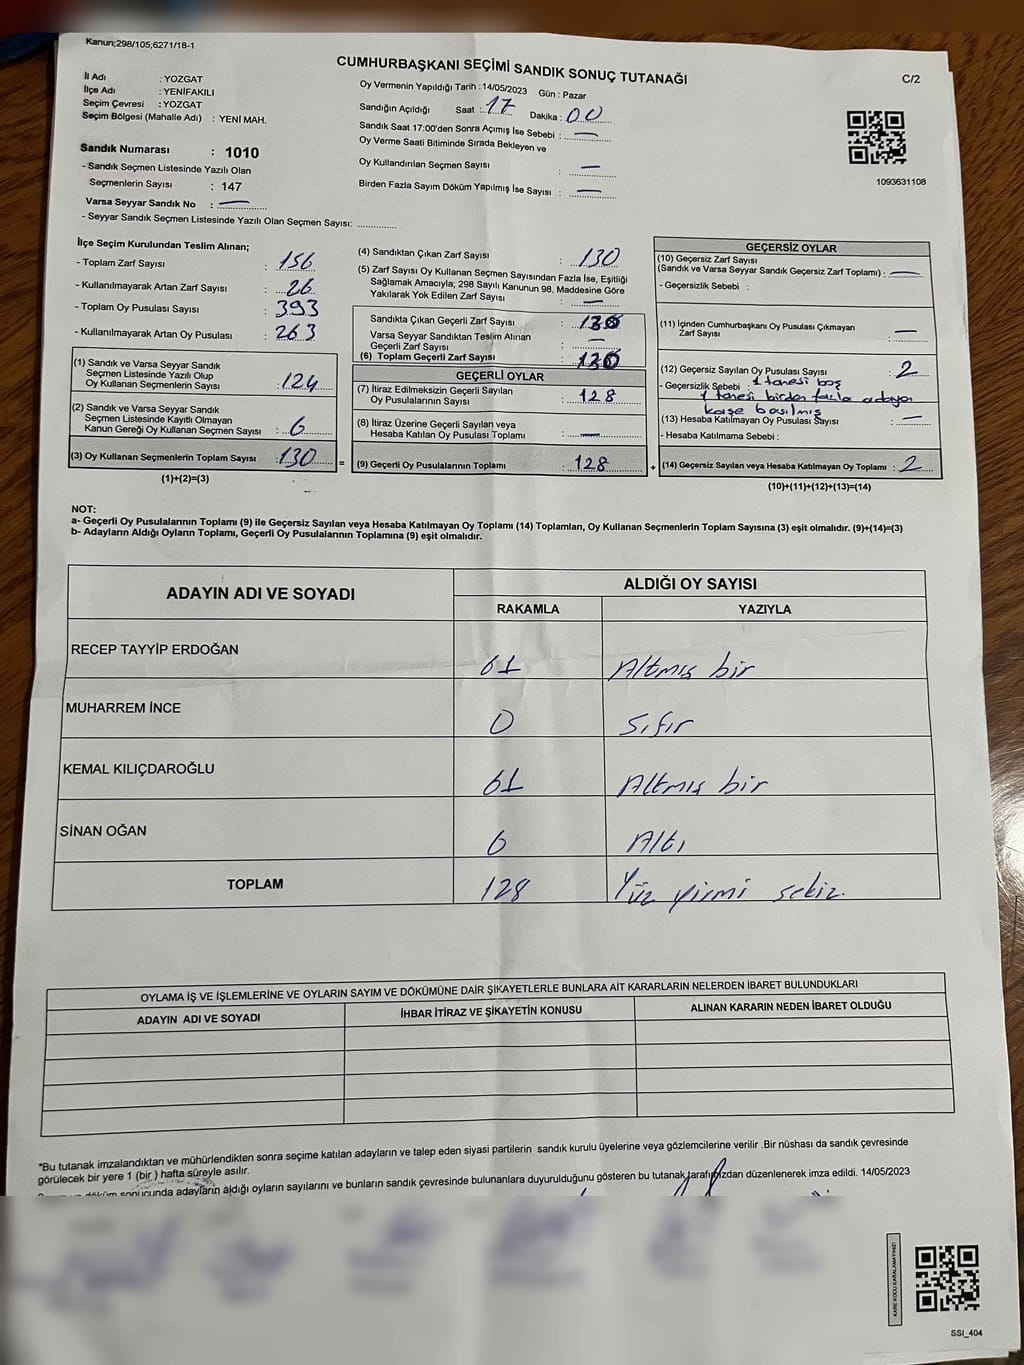 Kanun;298/105;6271/18-1
CUMHURBAŞKANI SEÇİMİ SANDIK SONUÇ TUTANAĞI
C/2
İl Adı : YOZGAT
İlçe Adı : YENİFAKILI
Seçim Çevresi : YOZGAT
Seçim Bölgesi (Mahalle Adı) : YENİ MAH.
Sandık Numarası : 1010
- Sandık Seçmen Listesinde Yazılı Olan
Seçmenlerin Sayısı : 147
Varsa Seyyar Sandık No : —
- Seyyar Sandık Seçmen Listesinde Yazılı Olan Seçmen Sayısı: ............
Oy Vermenin Yapıldığı Tarih : 14/05/2023 Gün : Pazar
Sandığın Açıldığı Saat : 17 Dakika : 00
Sandık Saat 17:00'den Sonra Açımış İse Sebebi : —
Oy Verme Saati Bitiminde Sırada Bekleyen ve
Oy Kullandırılan Seçmen Sayısı : —
Birden Fazla Sayım Döküm Yapılmış İse Sayısı : —
1093631108
İlçe Seçim Kurulundan Teslim Alınan;
- Toplam Zarf Sayısı : 156
- Kullanılmayarak Artan Zarf Sayısı : 26
- Toplam Oy Pusulası Sayısı : 393
- Kullanılmayarak Artan Oy Pusulası : 263
(1) Sandık ve Varsa Seyyar Sandık
Seçmen Listesinde Yazılı Olup
Oy Kullanan Seçmenlerin Sayısı : 124
(2) Sandık ve Varsa Seyyar Sandık
Seçmen Listesinde Kayıtlı Olmayan
Kanun Gereği Oy Kullanan Seçmen Sayısı : 6
(3) Oy Kullanan Seçmenlerin Toplam Sayısı : 130
(1)+(2)=(3)
(4) Sandıktan Çıkan Zarf Sayısı : 130
(5) Zarf Sayısı Oy Kullanan Seçmen Sayısından Fazla İse, Eşitliği
Sağlamak Amacıyla; 298 Sayılı Kanunun 98. Maddesine Göre
Yakılarak Yok Edilen Zarf Sayısı : —
Sandıkta Çıkan Geçerli Zarf Sayısı :
Varsa Seyyar Sandıktan Teslim Alınan
Geçerli Zarf Sayısı : —
(6) Toplam Geçerli Zarf Sayısı :
GEÇERLİ OYLAR
(7) İtiraz Edilmeksizin Geçerli Sayılan
Oy Pusulalarının Sayısı : 128
(8) İtiraz Üzerine Geçerli Sayılan veya
Hesaba Katılan Oy Pusulası Toplamı : —
= (9) Geçerli Oy Pusulalarının Toplamı : 128
GEÇERSİZ OYLAR
(10) Geçersiz Zarf Sayısı
(Sandık ve Varsa Seyyar Sandık Geçersiz Zarf Toplamı) : —
- Geçersizlik Sebebi :
(11) İçinden Cumhurbaşkanı Oy Pusulası Çıkmayan
Zarf Sayısı : —
(12) Geçersiz Sayılan Oy Pusulası Sayısı : 2
- Geçersizlik Sebebi : 1 tanesi boş
1 tanesi birden fazla adaya
kaşe basılmış
(13) Hesaba Katılmayan Oy Pusulası Sayısı : —
- Hesaba Katılmama Sebebi :
+ (14) Geçersiz Sayılan veya Hesaba Katılmayan Oy Toplamı : 2
(10)+(11)+(12)+(13)=(14)
NOT:
a- Geçerli Oy Pusulalarının Toplamı (9) ile Geçersiz Sayılan veya Hesaba Katılmayan Oy Toplamı (14) Toplamları, Oy Kullanan Seçmenlerin Toplam Sayısına (3) eşit olmalıdır. (9)+(14)=(3)
b- Adayların Aldığı Oyların Toplamı, Geçerli Oy Pusulalarının Toplamına (9) eşit olmalıdır.
ADAYIN ADI VE SOYADI
ALDIĞI OY SAYISI
RAKAMLA YAZIYLA
RECEP TAYYİP ERDOĞAN 61 Altmış bir
MUHARREM İNCE 0 Sıfır
KEMAL KILIÇDAROĞLU 61 Altmış bir
SİNAN OĞAN 6 Altı
TOPLAM 128 Yüz yirmi sekiz
OYLAMA İŞ VE İŞLEMLERİNE VE OYLARIN SAYIM VE DÖKÜMÜNE DAİR ŞİKAYETLERLE BUNLARA AİT KARARLARIN NELERDEN İBARET BULUNDUKLARI
ADAYIN ADI VE SOYADI İHBAR İTİRAZ VE ŞİKAYETİN KONUSU ALINAN KARARIN NEDEN İBARET OLDUĞU
*Bu tutanak imzalandıktan ve mühürlendikten sonra seçime katılan adayların ve talep eden siyasi partilerin sandık kurulu üyelerine veya gözlemcilerine verilir .Bir nüshası da sandık çevresinde
görülecek bir yere 1 (bir ) hafta süreyle asılır.
sonucunda adayların aldığı oyların sayılarını ve bunların sandık çevresinde bulunanlara duyurulduğunu gösteren bu tutanak tarafımızdan düzenlenerek imza edildi. 14/05/2023
KARE KODU KARALAMAYINIZ!
SSI_404